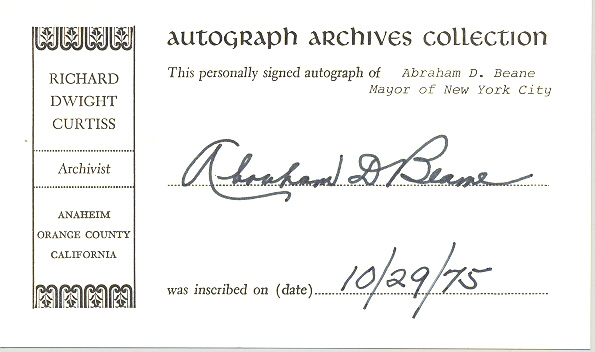 RICHARD
DWIGHT
CURTISS
Archivist
ANAHEIM
ORANGE COUNTY
CALIFORNIA
autograph archives collection
This personally signed autograph of Abraham D. Beane
Mayor of New York City
Abraham D Beame
was inscribed on (date) 10/29/75